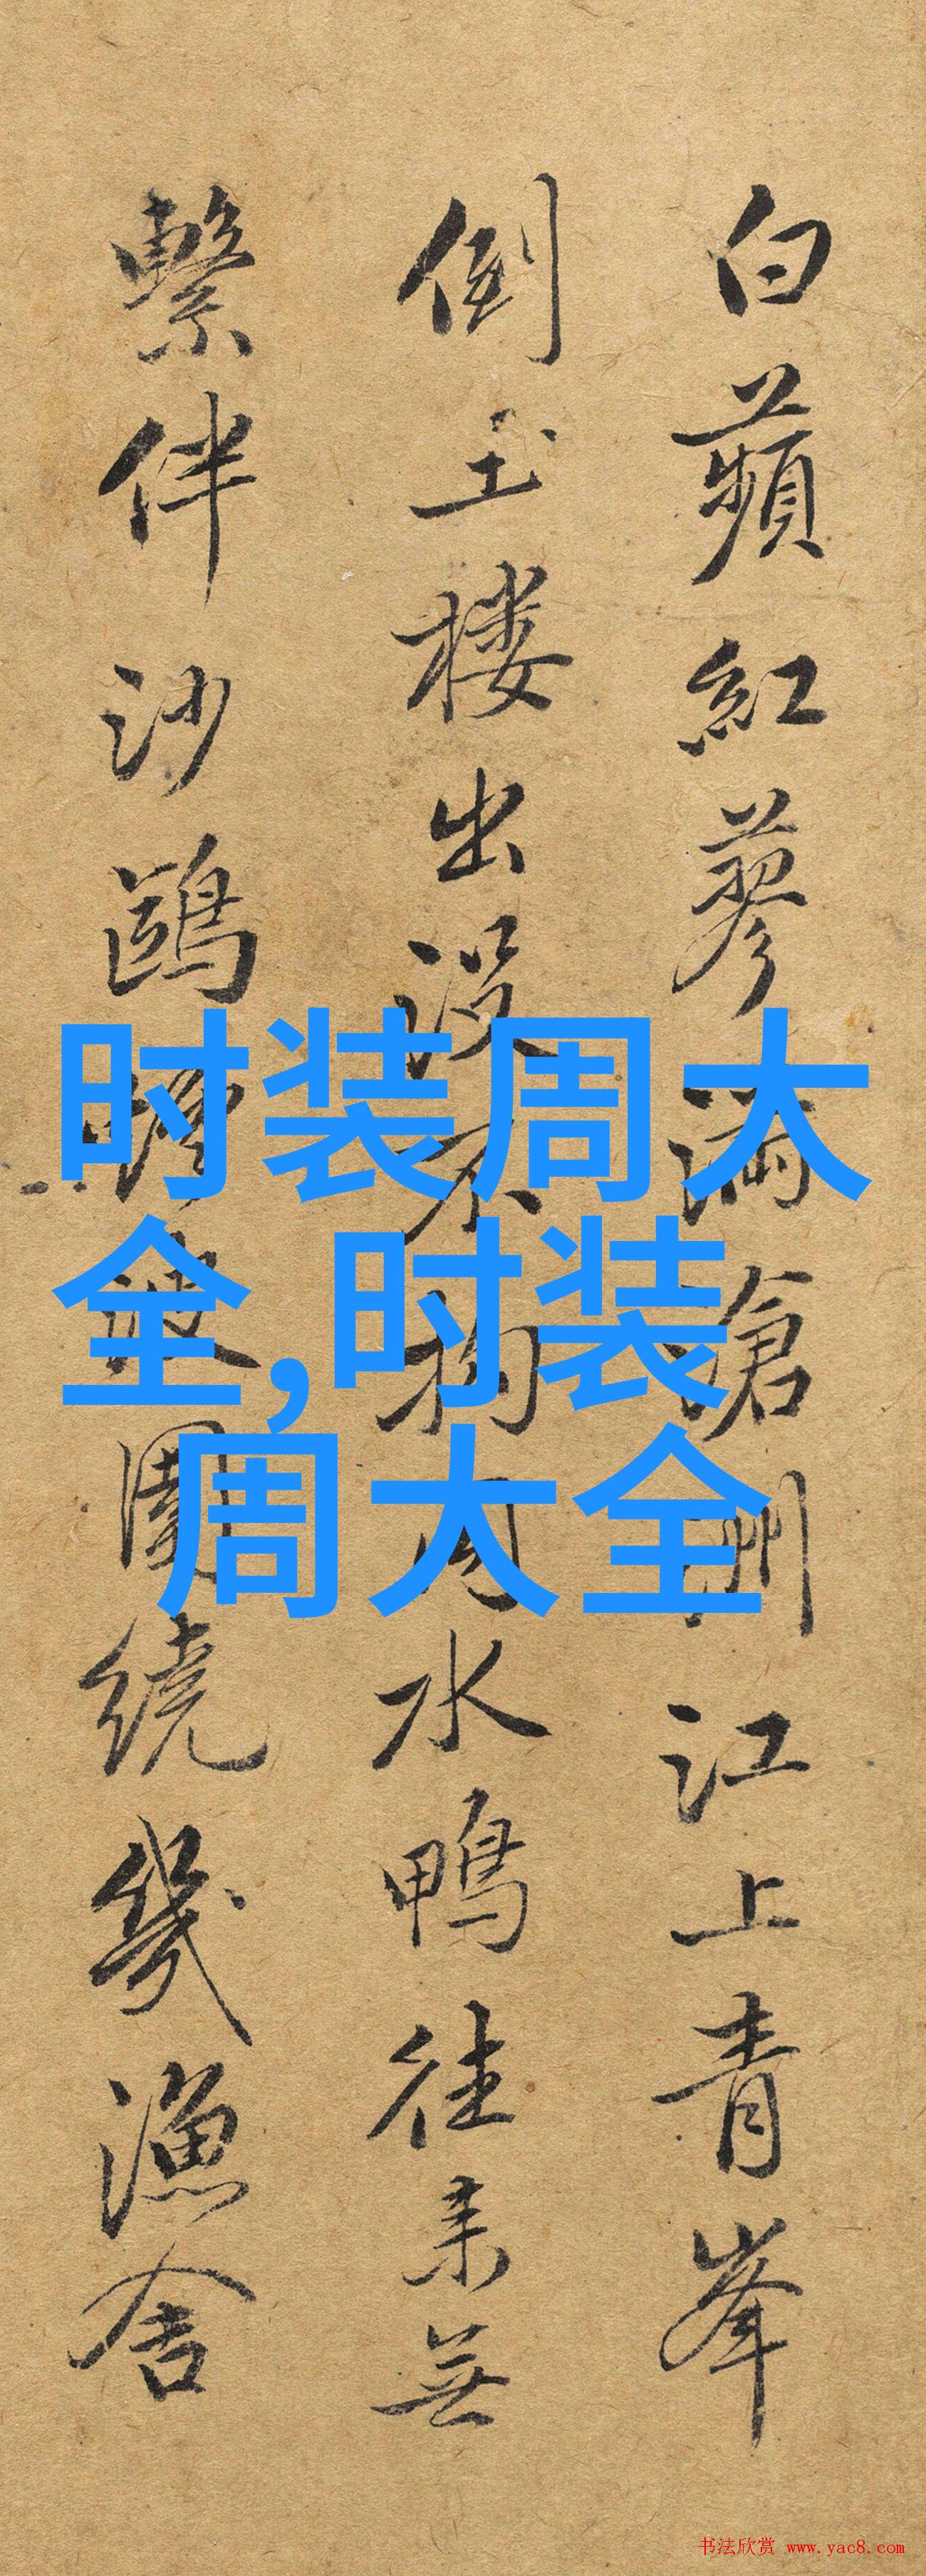 白蘋紅蓼滿滄洲江上青峯
倒玉楼出没不拘水鴨往来無
繫伴沙鷗波圍繞幾漁舍
时装周大
全,时装
周大全
书法欣赏 www.yac8.com